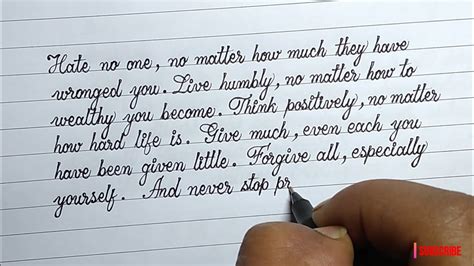 Hate no one, no matter how much they have
wronged you. Live humbly, no matter how to
wealthy you become. Think positively, no matter
how hard life is. Give much, even each you
have been given little. Forgive all, especially
yourself. And never stop pr
SUBSCRIBE